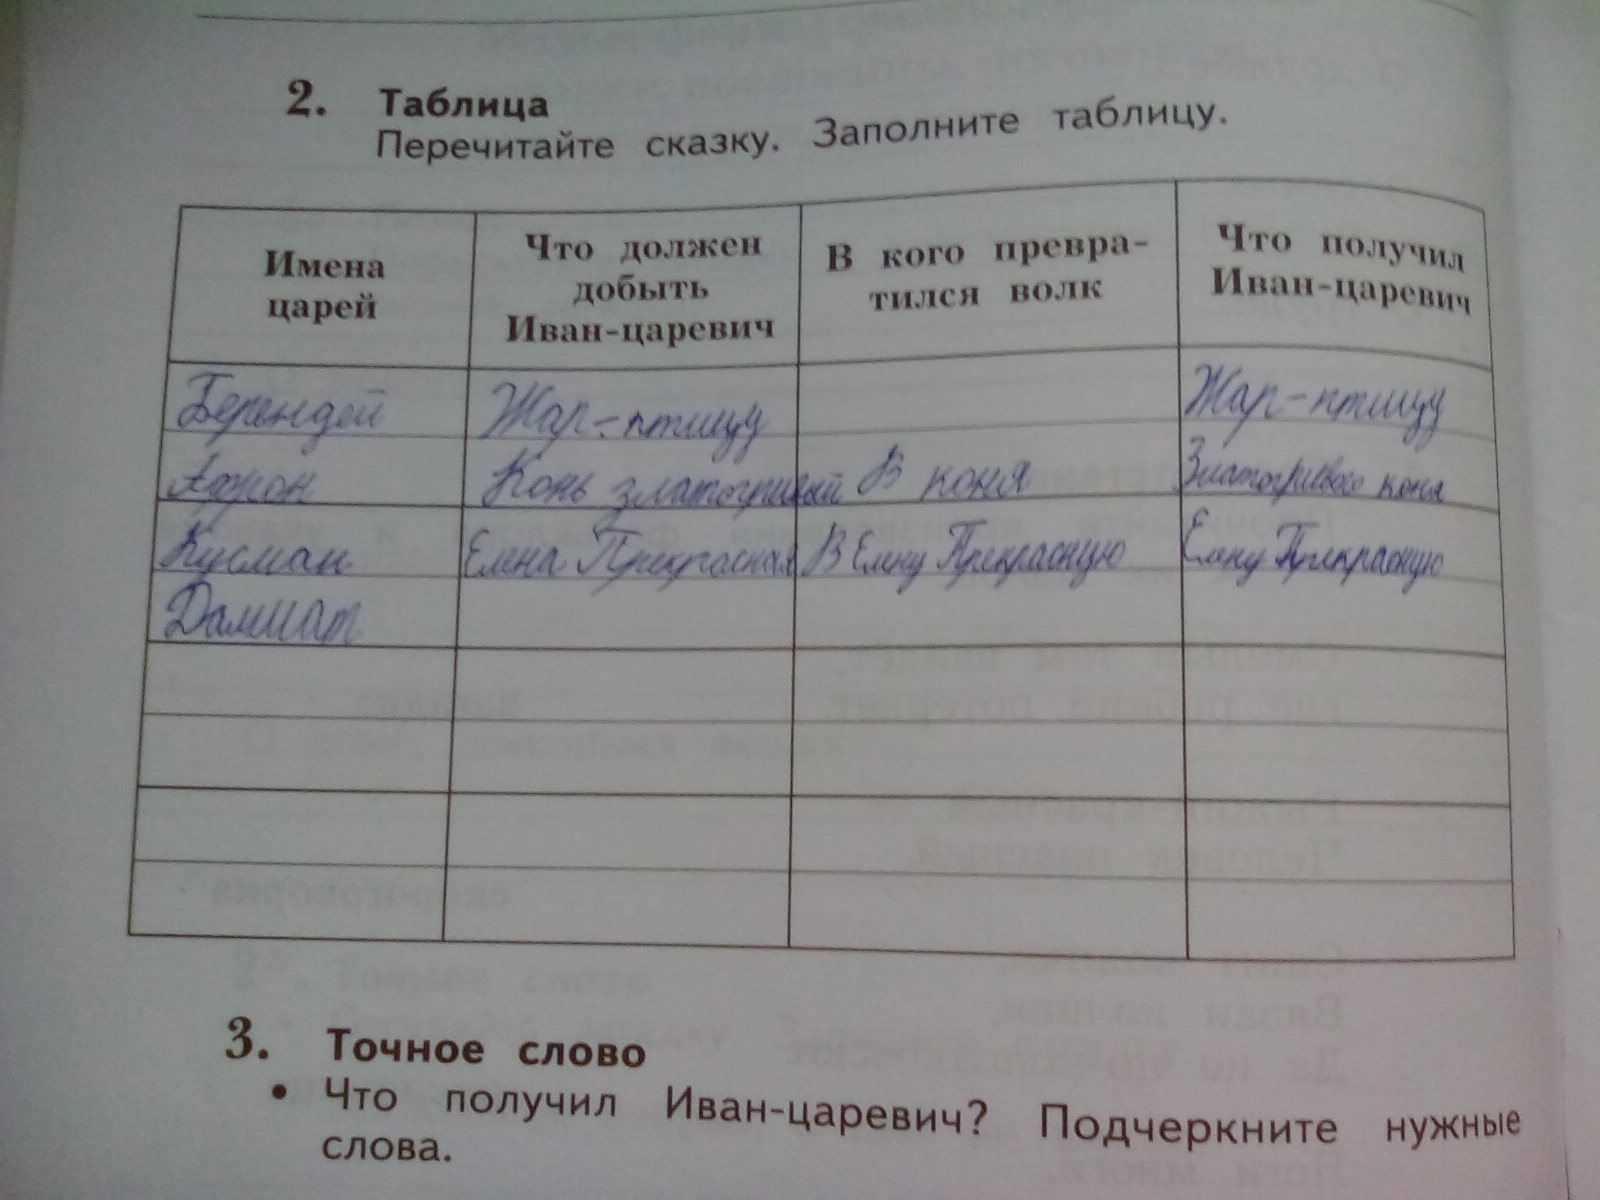 2. Таблица
Перечитайте сказку. Заполните таблицу.
Имена царей
Что должен добыть Иван-царевич
В кого превра-тился волк
Что получил Иван-царевич
Берендей Жар-птицу Жар-птицу
Афрон Конь златогривый В коня Златогривого коня
Кусман Елена Прекрасная В Елену Прекрасную Елену Прекрасную
Далмат
3. Точное слово
• Что получил Иван-царевич? Подчеркните нужные
слова.